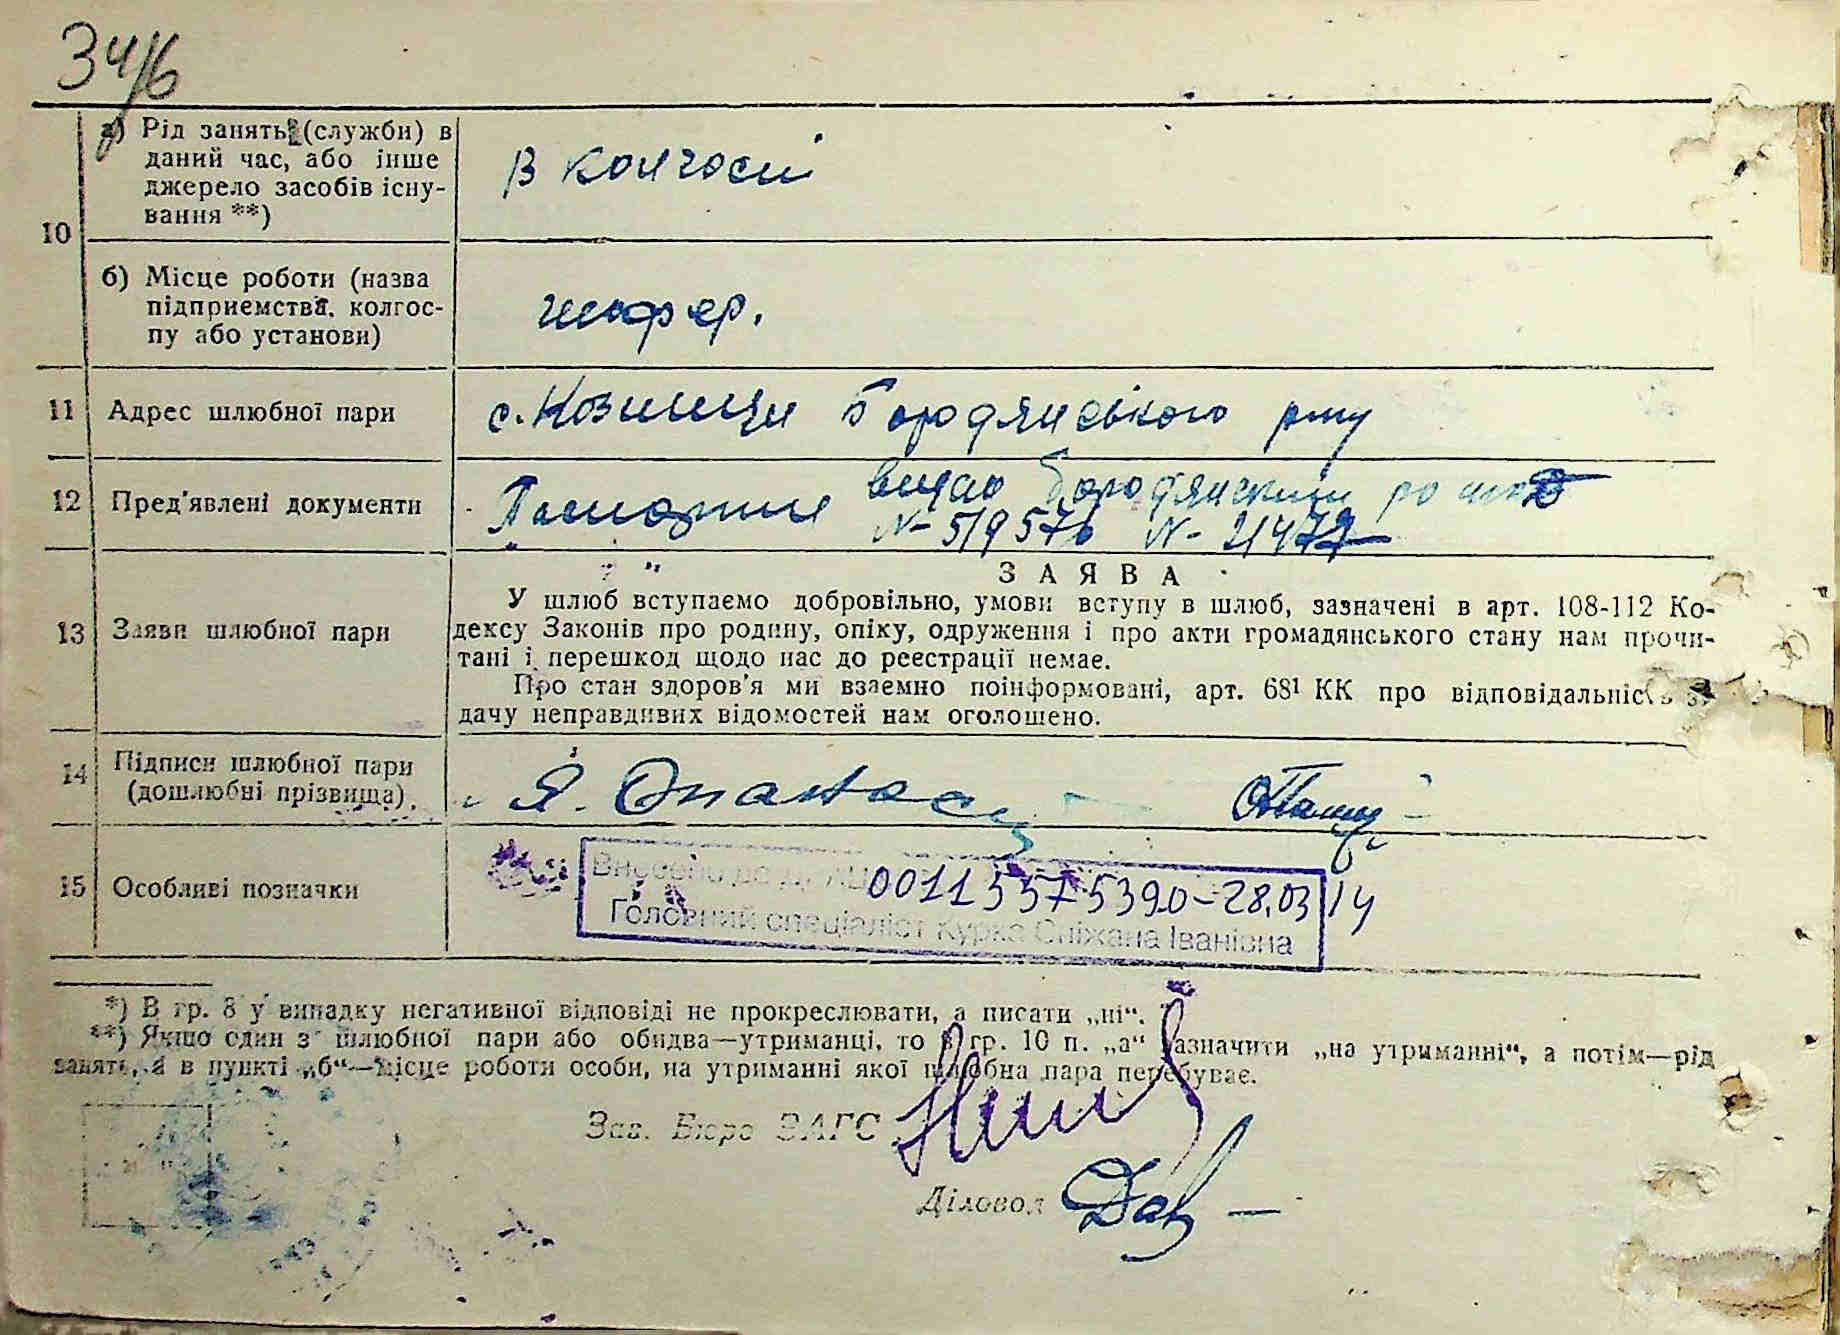 34/6
10
а) Рід занять (служби) в
даний час, або інше
джерело засобів існу-
вання **)
В колгоспі
б) Місце роботи (назва
підприємства, колгос-
пу або установи)
шофер.
11 Адрес шлюбної пари
с. Козинци Бородянського р-ну
12 Пред'явлені документи
видао Бородянским
Паспорти
N- 519576 N- 21477
ЗАЯВА
13 Заяви шлюбної пари
У шлюб вступаємо добровільно, умови вступу в шлюб, зазначені в арт. 108-112 Ко-
дексу Законів про родину, опіку, одруження і про акти громадянського стану нам прочи-
тані і перешкод щодо нас до реєстрації немає.
Про стан здоров'я ми взаємно поінформовані, арт. 68¹ КК про відповідальність
дачу неправдивих відомостей нам оголошено.
14 Підписи шлюбної пари
(дошлюбні прізвища)
15 Особливі позначки
Внесено до
00115575390-28.03.14
Головний спеціаліст Курка Сніжана Іванівна
*) В гр. 8 у випадку негативної відповіді не прокреслювати, а писати „ні“.
**) Якщо один з шлюбної пари або обидва—утриманці, то в гр. 10 п. „а“ зазначити „на утриманні“, а потім—рід
занять, а в пункті „б“—місце роботи особи, на утриманні якої шлюбна пара перебуває.
Зав. Бюро ЗАГС
Діловод